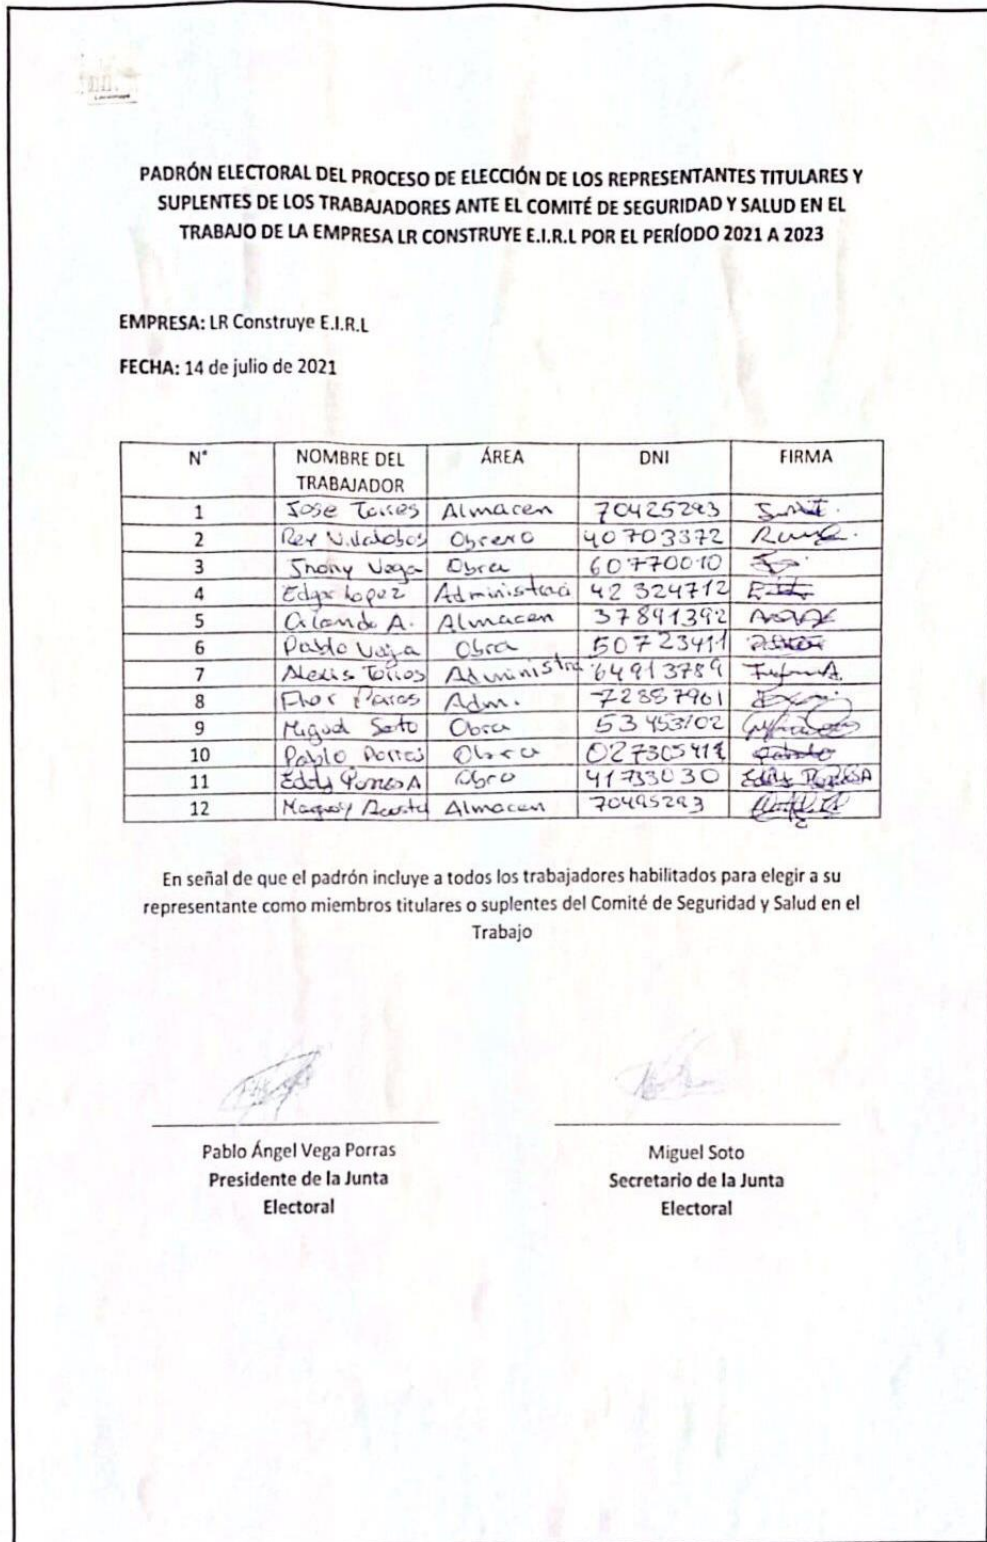 PADRÓN ELECTORAL DEL PROCESO DE ELECCIÓN DE LOS REPRESENTANTES TITULARES Y
SUPLENTES DE LOS TRABAJADORES ANTE EL COMITÉ DE SEGURIDAD Y SALUD EN EL
TRABAJO DE LA EMPRESA LR CONSTRUYE E.I.R.L POR EL PERÍODO 2021 A 2023
EMPRESA: LR Construye E.I.R.L
FECHA: 14 de julio de 2021
N° NOMBRE DEL TRABAJADOR ÁREA DNI FIRMA
1 Jose Torres Almacen 70425293
2 Rey Villalobos Obrero 40703372
3 Jhony Vega Obra 60770010
4 Edgar Lopez Administraci 42324712
5 Orlando A. Almacen 37891392
6 Pablo Vega Obra 50723411
7 Alexis Torres Administra 64913789
8 Flor Adm. 72857961
9 Miguel Soto Obra 53453102
10 Pablo Porras Obra
11 Eddy A Obra 41733030 Eddy
12 Acosta Almacen 70495293
En señal de que el padrón incluye a todos los trabajadores habilitados para elegir a su
representante como miembros titulares o suplentes del Comité de Seguridad y Salud en el
Trabajo
Pablo Ángel Vega Porras
Presidente de la Junta
Electoral
Miguel Soto
Secretario de la Junta
Electoral